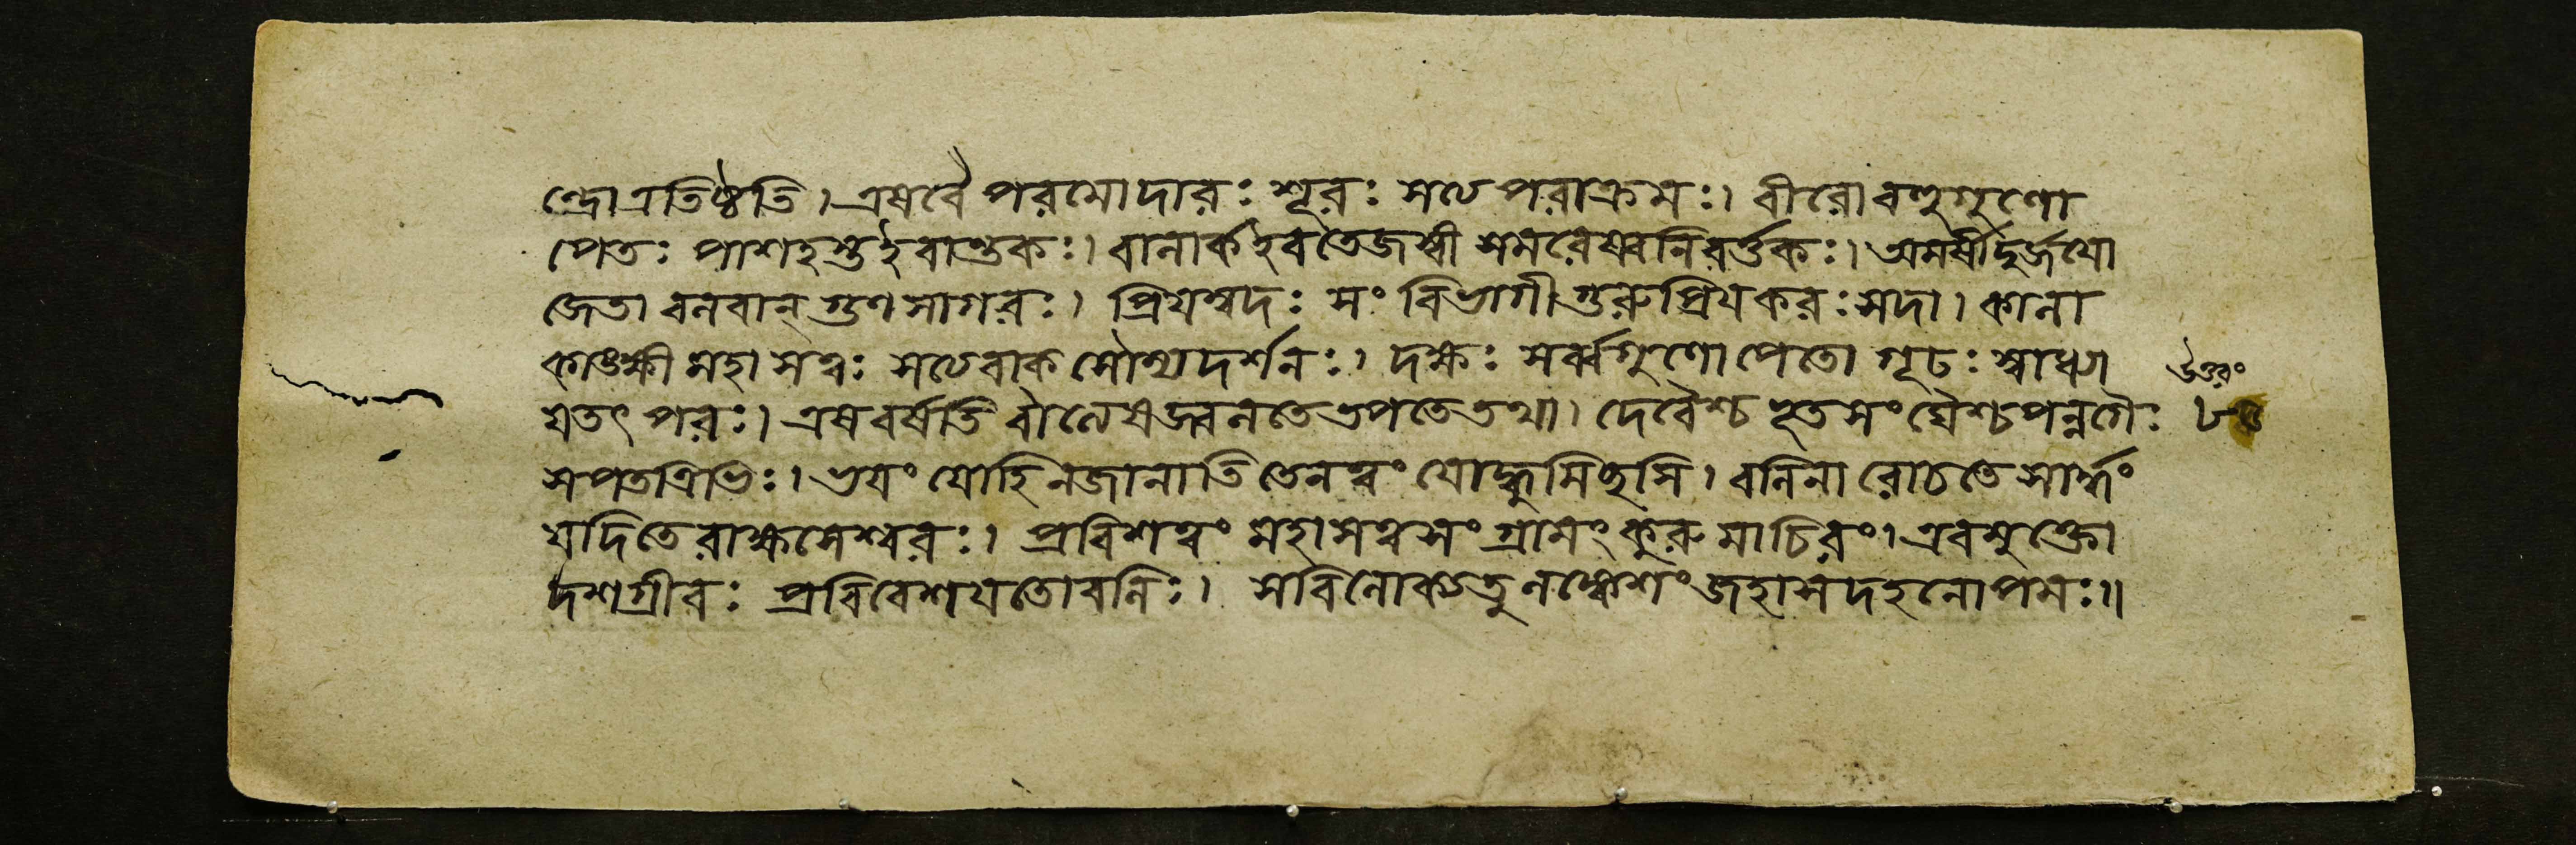 ন্দ্রোত্রতিষ্ঠতি। এষবৈ পরমোদারঃ শূরঃ সত্যপরাক্রমঃ। বীরোবহুগুণো
পেতঃ পাশহস্তইবান্তকঃ। বালার্কইবতেজস্বী সমরেষ্বনিবর্ত্তকঃ। অমর্ষীদুর্জ্জযো
জেতা বলবান্ গুণসাগরঃ। প্রিযম্বদঃ সংবিভাগী গুরুপ্রিযকরঃ সদা। কালা
কাঙ্ক্ষী মহাসত্বঃ সত্যবাক সৌম্যদর্শনঃ। দক্ষঃ সর্ব্বগুণোপেতো গূঢঃ স্বাধ্যা
যতৎপরঃ। এষবর্ষতি বাত্যেষজ্বলতেতপতেতথা। দেবৈশ্চ ভূতসংঘৈশ্চপন্নগৈঃ
সপতত্রিভিঃ। ভযং যোহিনজানাতি তেনত্বং যোদ্ধুমিচ্ছসি। বলিনা রোচতে সার্দ্ধং
যদিতে রাক্ষসেশ্বরঃ। প্রবিশত্বং মহাসত্বসংগ্রামং কুরু মাচিরং। এবমুক্তো
দশগ্রীবঃ প্রবিবেশযতোবলিঃ। সবিলোক্যতুলঙ্কেশং জহাসদহনোপমঃ॥